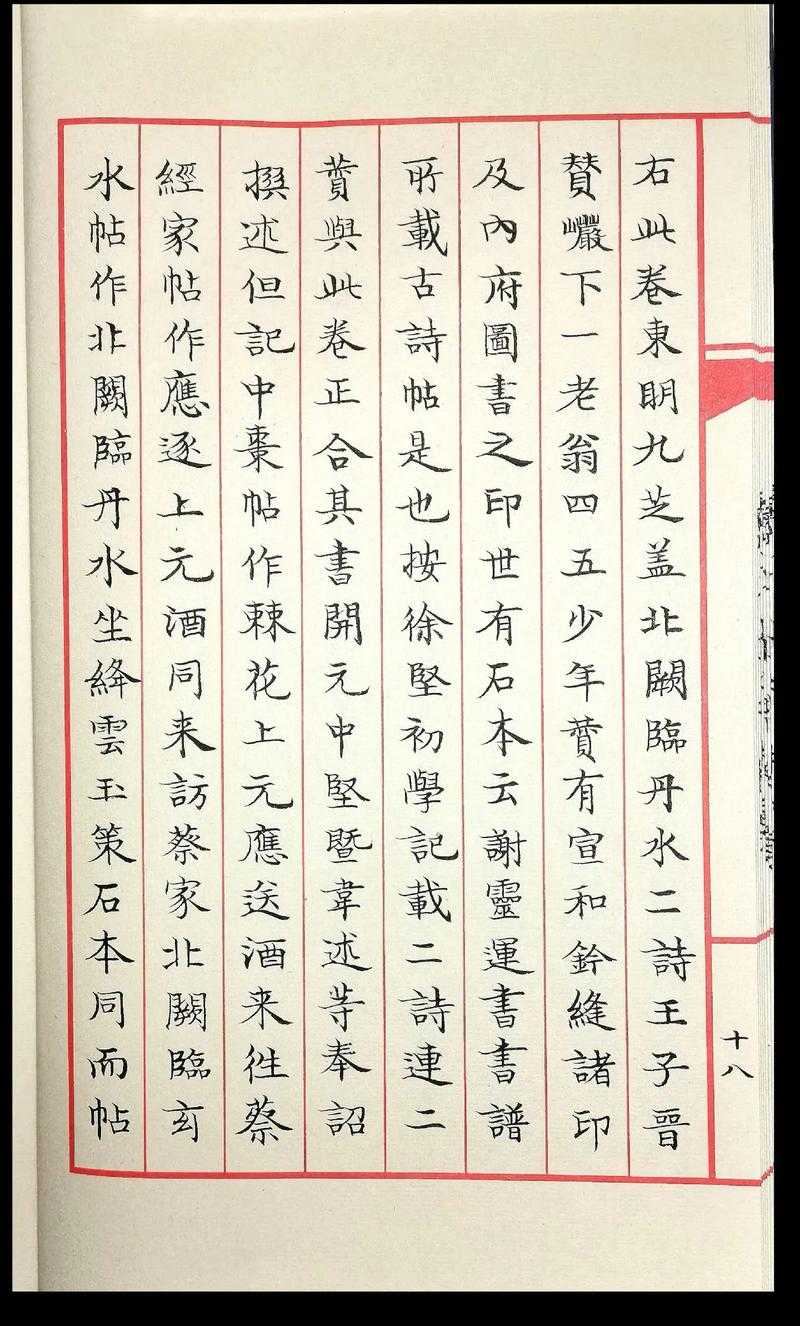 右此卷東明九芝盖北闕臨丹水二詩王子晉
賛巗下一老翁四五少年賛有宣和鈐縫諸印
及內府圖書之印世有石本云謝靈運書書譜
所載古詩帖是也按徐堅初學記載二詩連二
賛與此卷正合其書開元中堅暨韋述等奉詔
撰述但記中棗帖作棘花上元應送酒来往蔡
經家帖作應逐上元酒同来訪蔡家北闕臨玄
水帖作北闕臨丹水坐絳雲玉策石本同而帖
十八